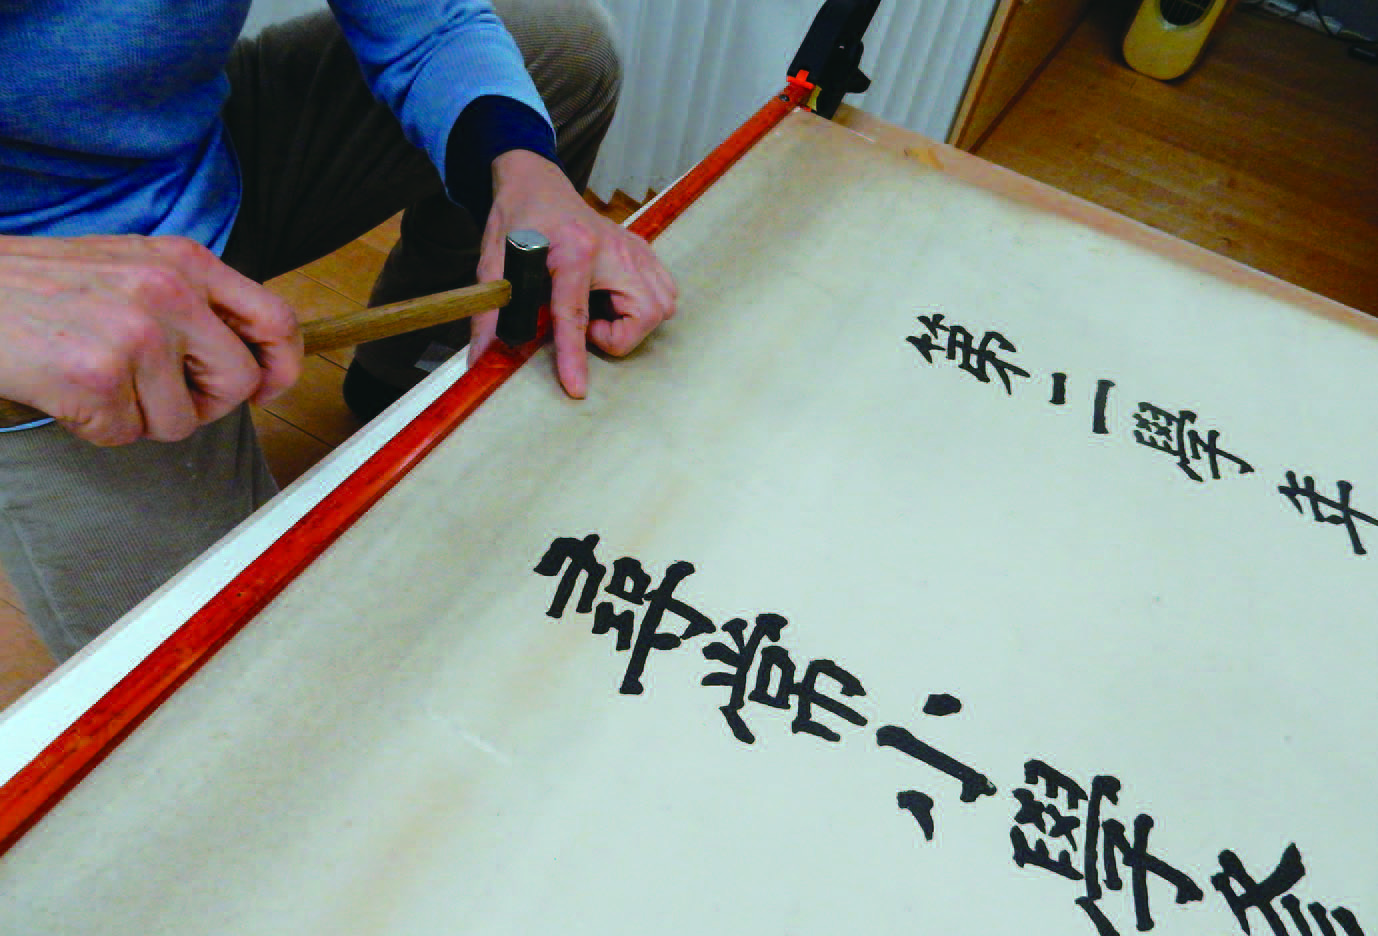 第二學年
尋常小學